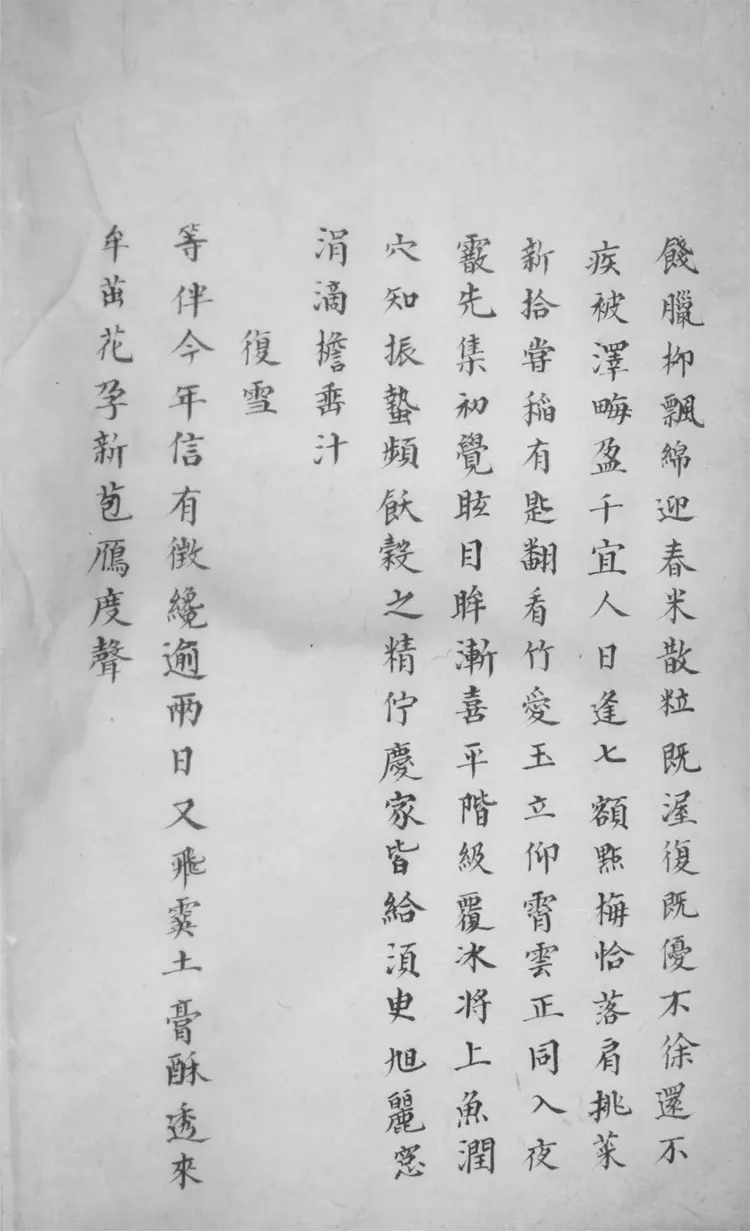 餞臘柳飄綿迎春米散粒既渥復既優不徐還不
疾被澤畮盈千宜人日逢七額點梅恰落肩挑菜
新拾嘗稲有匙翻看竹愛玉立仰霄雲正同入夜
霰先集初覺眩目眸漸喜平階級覆冰将上魚潤
穴知振蟄頻飫穀之精佇慶家皆給須臾旭麗窓
涓滴擔垂汁
復雪
等伴今年信有徴纔逾兩日又飛霙土膏酥透來
牟茁花孕新苞鴈度聲